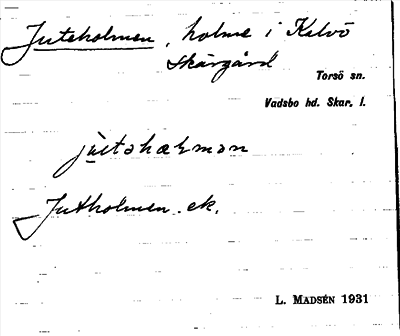 Juteholmen, holme i Kalvö
skärgård
Torsö sn.
Vadsbo hd. Skar. l.
jùtəhɷlmən
Jutholmen. ek.
L. MADSÉN 1931